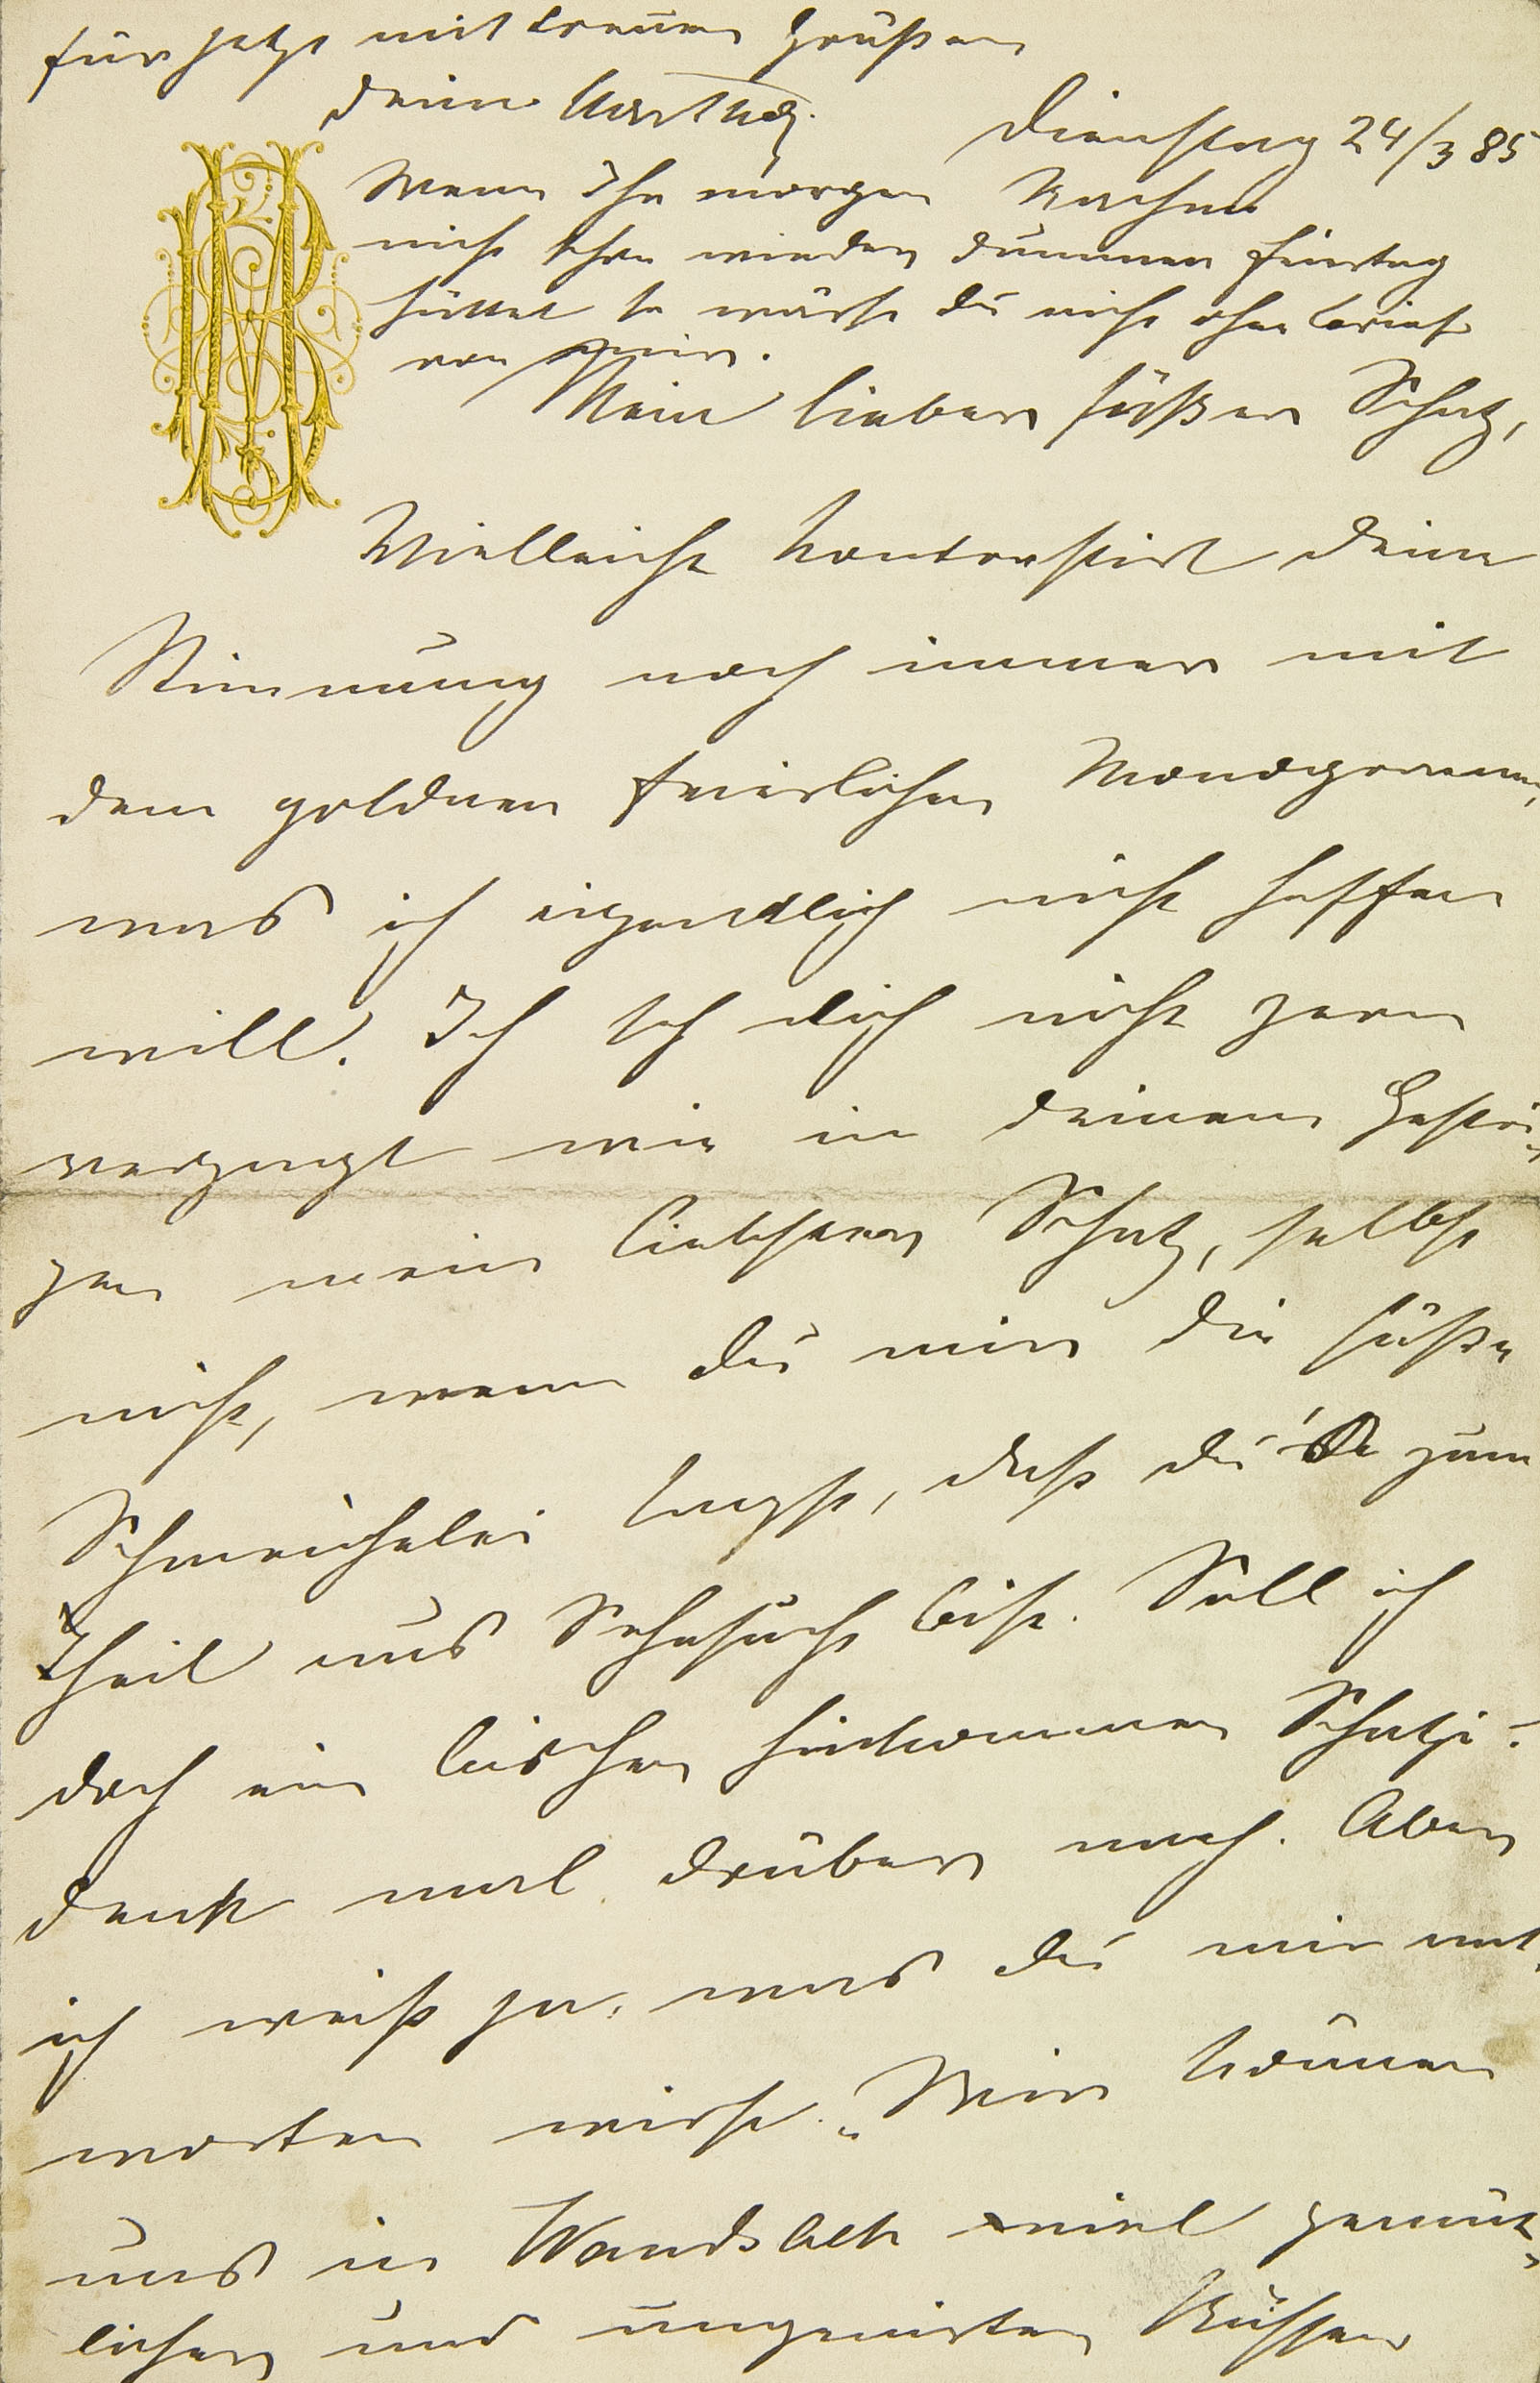 für jetzt mit treuen Grüßen
deine Martha.
Dienstag 24/3 85
Wenn Ihr morgen
nicht schon wieder dummen Feiertag
hättet so wärst du nicht ohne Brief
von mir.
Mein lieber süßer Schatz,
Vielleicht kontrastirt deine
Stimmung noch immer mit
dem goldnen feierlichen Monogramm,
was ich eigendlich nicht hoffen
will. Ich seh dich nicht gern
verzagt wie in deinem Gestri-
gen mein liebster Schatz, selbst
nicht, wenn du mir die süße
Schmeichelei sagst, daß du's zum
Theil aus Sehnsucht bist. Soll ich
doch ein bischen hinkommen Schatzi-
denk mal drüber nach. Aber
ich weiß ja, was du mir ant-
worten wirst. „Wir können
uns in Wandsbek viel gemüt-
licher und ungenirter küssen